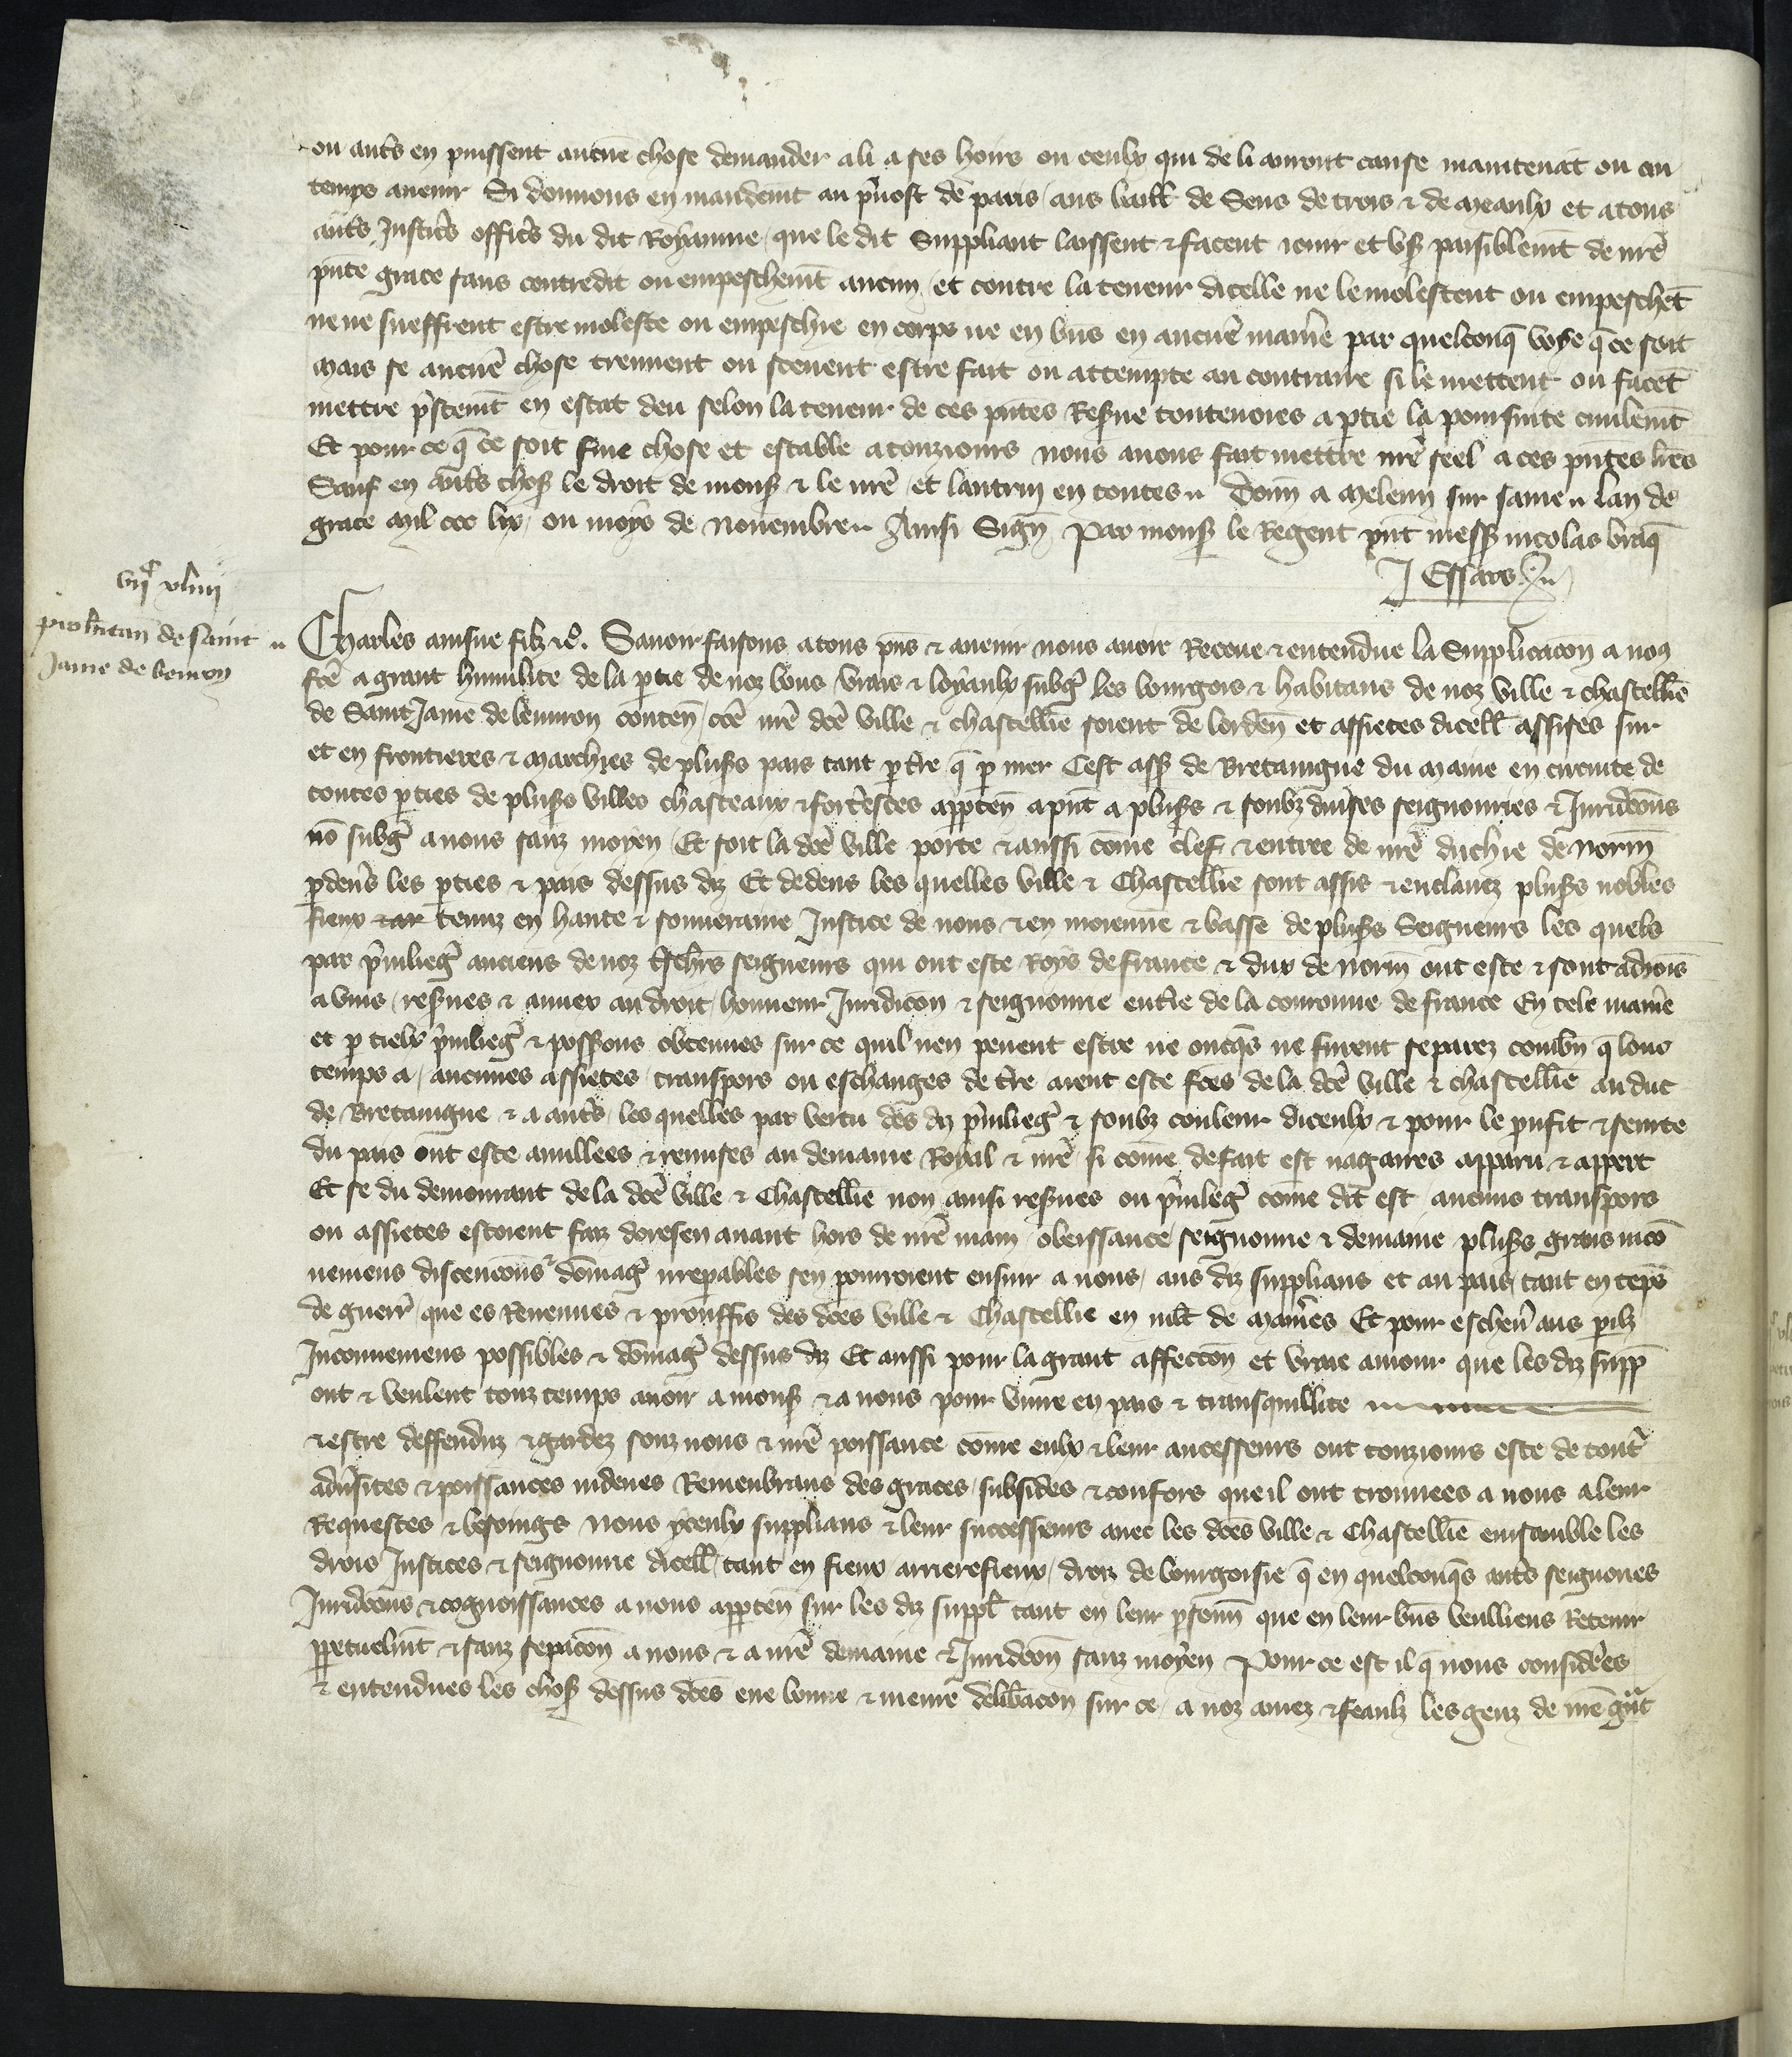 ou autˢ en puissent aucune chose demander a li a ses hoirs ou ceulx qui de li auront cause maintenāt ou ou
temps auenir Si donnons en mandemt au puost de paris / aus baill de Sens de trois & de Meaulx et a tous
autˢ Justicˢ officˢ du dit Royaume / que le dit Suppliant laissent & facent ioir et vs paisiblemt de nrē
pnte grace sans contredit ou empeschemt aucun / et contre la teneur dicelle ne le molestent ou empeschēt
ne ne sueffrent estre moleste ou empeschie en corps ne en biens en aucune manie par quelconq voye q ce soit
Mais se aucunē chose treuuent ou sceuent estre fait ou attempte au contraire si le mettent ou facēt
mettre pstemt en estat deu selon la teneur de ces pntes Resue toutenoies a ptie la poursuite ciuilemt
Et pour ce q ce soit fme chose et estable a touziours nous auons fait mettre nrē seel a ces pntes lres
Sauf en autˢ chos le droit de mons & le nrē et lautrui en toutes // Donn a Meleun sur saine // lan de
grace Mil ccc lix / ou moys de Nouembre // Ainsi Sign / Par mons le Regent pnt mess nicolas braq
J Essars
vijᶜ xliiij
pro hitan de saint
Jame de beuron
Charles ainsne filz &c. Sauoir faisons a tous pns & auenir nous auoir Receue & entendue la Supplicacon a nos
fce a grant humilite de la ptie de noz bons vrais & loyaulx subg les bourgois & habitans de noz ville & chastellie
de Saint Jame de beuuron conten / cōe nrē dcē ville & chastellie soient de lorden et assietes dicell assises sur
et en frontieres & marches de pluss pais tant p tre q p mer Cest ass de Bretaingne du Maine en circuite de
toutes pties de pluss villes chasteaux & fortesces apparten a pnt a pluss & soubz diuises seignouries & Juridcons
nō subg a nous sanz moyen / Et soit la dcē ville porte & aussi come clef & entree de nrē duchie de Norm
p deuˢ les pties & pais dessus diz Et dedens les quelles ville & Chastellie sont assis & enclauez pluss nobles
fieux & ar tenuz en haute & souueraine Justice de nous & en moienne & basse de pluss Seigneurs les quels
par priuilieg anciens de noz tschrs seigneurs qui ont este Roys de france & dux de Norm ont este & sont adiois
a vnis / resues & annex au droit / honneur Juridicon & seignourie entie de la couronne de france En tele manie
et p tielx priuilieg & possons obtenues sur ce quil nen peuent estre ne oncqs ne furent separez combn q lonc
temps a / aucunes assietes / transpors ou eschanges de tre aient este fces de la dcē ville & chastellie au duc
de Bretaingne & a autˢ / les quelles par vertu des diz priuilieg & soubz couleur diceulx & pour le prufit & seurte
du pais ont este anullees & remises au demaine Royal & nrē / si come de fait est nagaires apparu & appert
Et se du demourant de la dcē ville & Chastellie non ainsi resues ou priuileg come dit est / aucuns transpors
ou assietes estoient faiz doresen auant hors de nrē main / obeissance / seignourie & demaine pluss grans inco
ueniens discencons domag irrepables sen pourroient ensuir a nous / aus diz supplians et au pais / tant en teps
de guerr / que es Reuenues & prouffis des dces ville & Chastellie en mlt de manies Et pour escheu aus pilz
Inconueniens possibles & domag dessus diz Et aussi pour la grant affeccon et vraie amour que les diz supp
ont & veulent touz temps auoir a mons & a nous pour viure en pais & transquillite
& estre deffenduz & gardez souz nous & nrē poissance come eulx & leur ancesseurs ont touziours este de tout
aduisites & poissances indeues Remenbrans des graces / subsides & confors que il ont trouuees a nous a leur
Requestes & besoings Nous yceulx supplians & leur successeurs auec les dces ville & Chastellie ensamble les
drois Justices & seignourie dicell / tant en fieux arrierefieux / droiz de bourgoisie q en quelconqs autˢ seignories
Juridcons & cognoissances a nous apparten sur les diz suppl tant en leur psonn que en leur bns veulliens Retenir
ppetuelmt & sanz sepacon a nous & a nrē demaine & Juridcon sanz moyen Pour ce est il q nous considerees
& entendues les chos dessus dces eue bonne & meure delibacon sur ce / a noz amez & feaulz les genz de nrē gnt